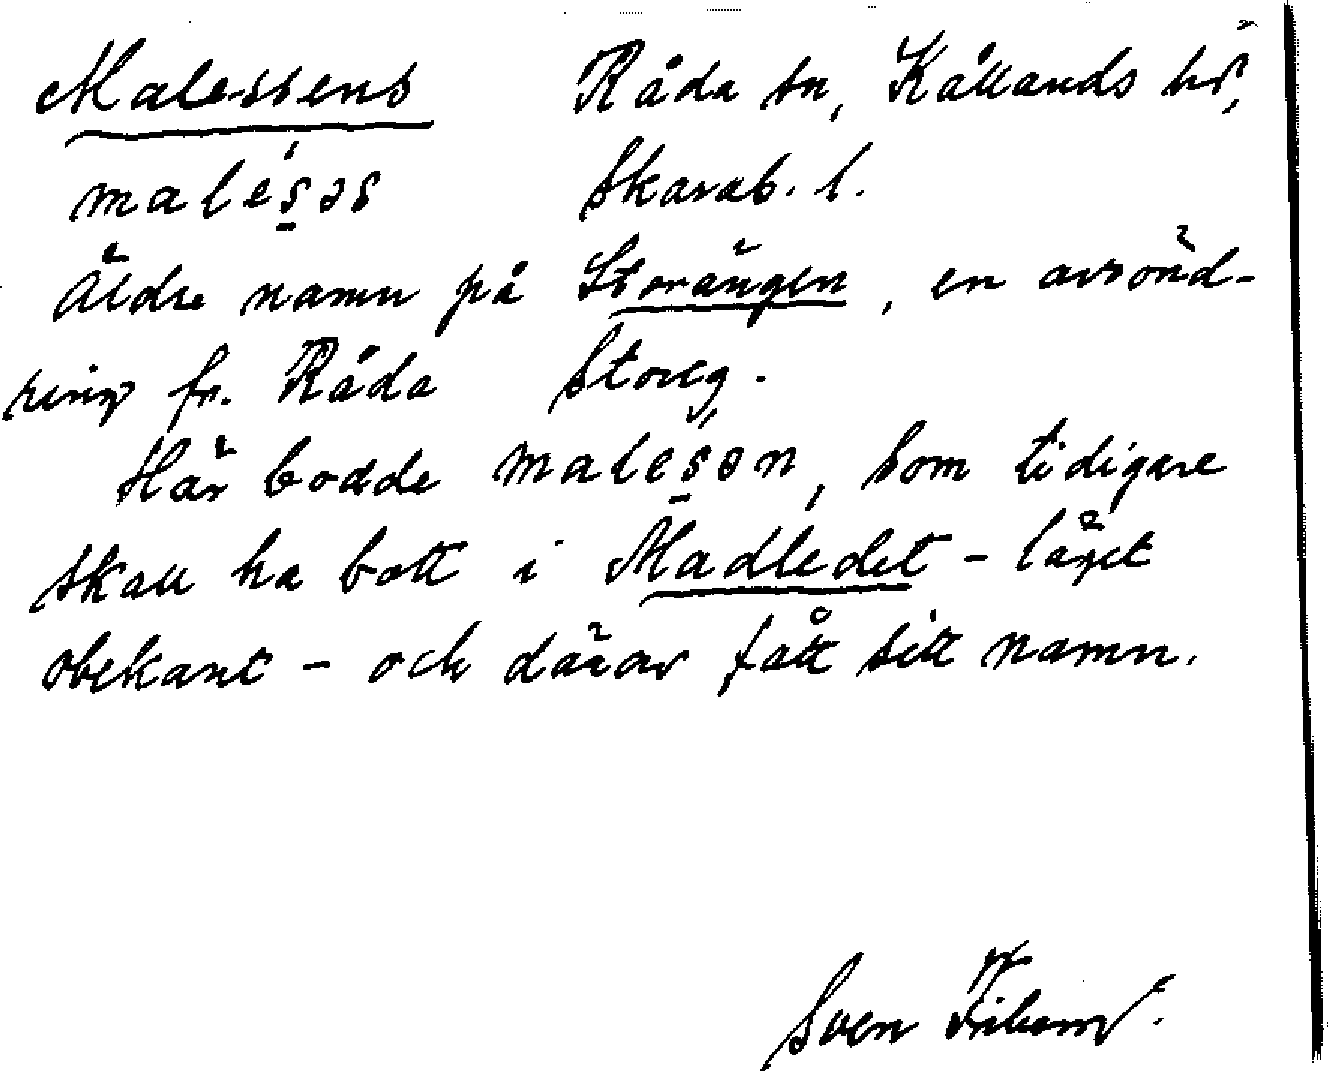 Malessens Råda sn, Kållands hd,
malés̱əs Skarab. l.
Äldre namn på Storängen, en avsönd-
ring fr. Råda Storeg.
Här bodde malés̱ən, som tidigare
skall ha bott i Madledet - läget
obekant - och därav fått sitt namn.
Sven